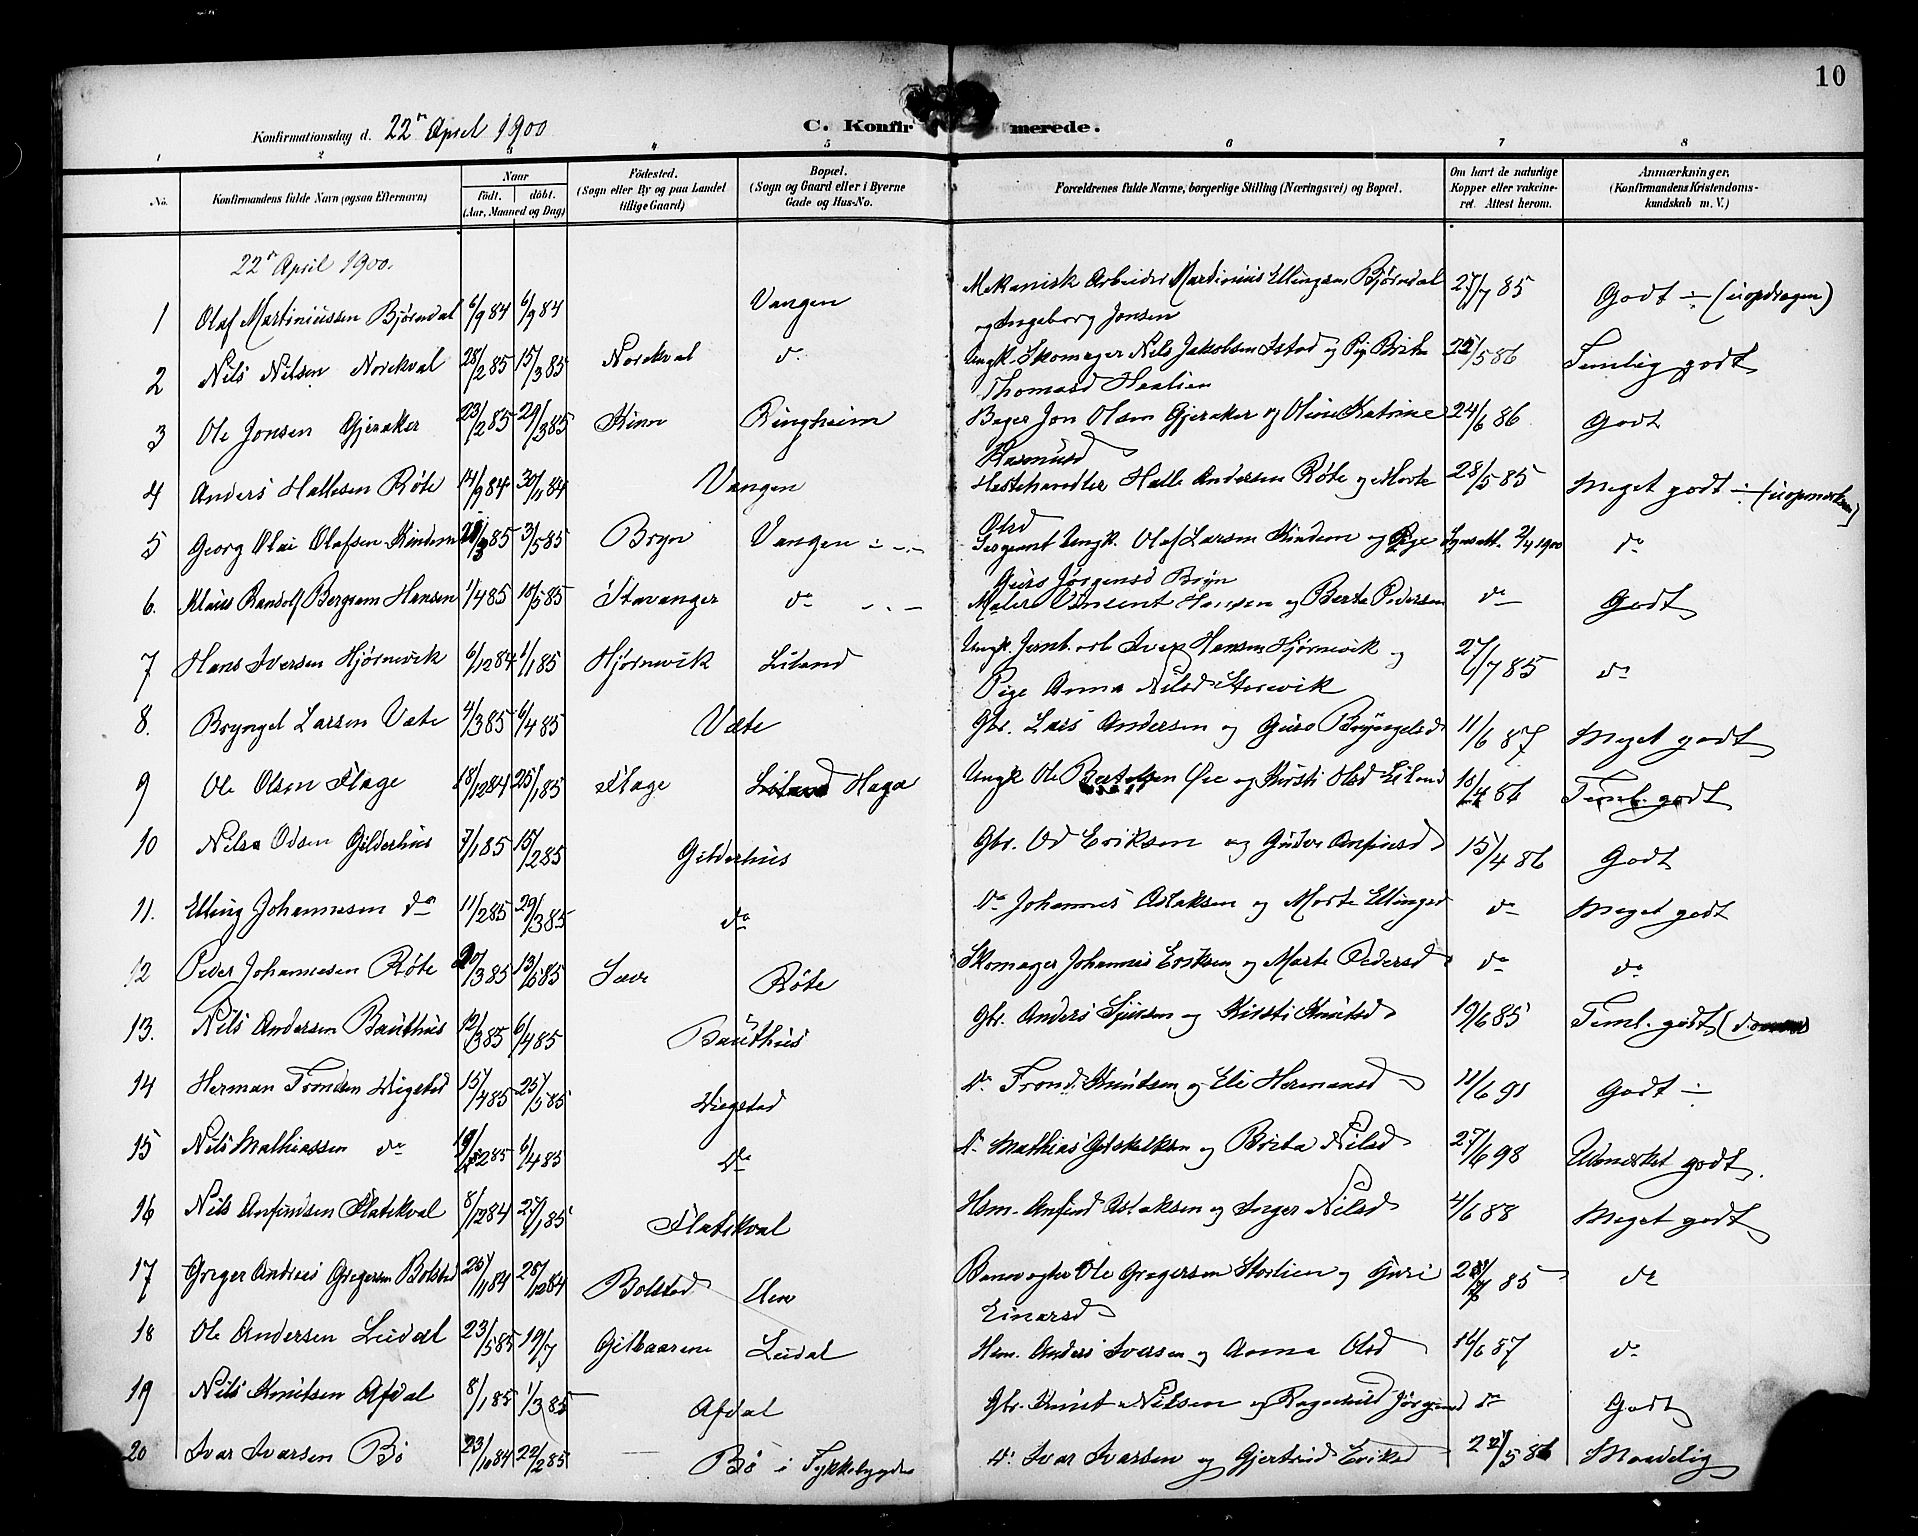 10
Konfirmationsdag d. 22n April 1900
C. Konfirmerede.
1 2 3 4 5 6 7 8
No.
Konfirmandens fulde Navn (ogsaa Efternavn)
Naar
født. døbt.
(Aar, Maaned og Dag)
Födested.
(Sogn eller By og paa Landet
tillige Gaard)
Bopæl.
(Sogn og Gaard eller i Byerne
Gade og Hus-No.
Forældrenes fulde Navne, borgerlige Stilling (Næringsvei) og Bopæl.
Om havt de naturlige
Kopper eller vakcine-
ret. Attest herom.
Anmærkninger,
(Konfirmandens Kristendoms-
kundskab m. V.)
22n April 1900.
1 Olaf Martiniussen Bjørndal 6/9 84 6/9 84 Vangen Mekanisk Arbeider Martinius Ellingsen Bjørndal 27/7 85 Godt ÷ (uopdragen)
og Ingeborg Jonsen
2 Nils Nilsen Nordkval 28/2 85 15/3 85 Nordkval do Ungk. Skomager Nils Jakobsen Istad og Pig Brita 22/5 86 Temlig godt
Thomasd
3 Ole Jonsen Gjeraker 23/2 85 29/3 85 Kinn Ringheim Bager Jon Olsen Gjeraker og Oline Katrine 24/6 86 Godt
Rasmusd
4 Anders Hallesen Røte 14/9 84 30/11 84 Vangen Hestehandler Halle Andersen Røte og Marte 28/5 85 Meget godt ÷ (uopmerksom)
Olsd
5 Georg Olai Olafsen Kindem 3/5 85 Bryn Vangen Sergeant Ungk. Olaf Larsen Kindem og Pige Lynatt. 2/4 1900 do
Guro Jørgensd Bryn
6. Klaus Randolf Bergsam Hansen 1/4 85 10/5 85 Stavanger do Maler Vinsent Hansen og Berte Pedersen do Godt
7 Hans Iversen Hjørnevik 6/12 84 1/1 85 Hjørnevik Liland Ungk. Jernb. arb Iver Hansen Hjørnevik og 27/7 85 do
Pige Anna Nilsd Storevik
8. Bryngel Larsen Væte 4/3 85 6/4 85 Væte Gbr. Lars Andersen og Guro Bryngelsd 11/6 87 Meget godt
9 Ole Olsen Flage 18/12 84 25/1 85 Flage Haga Ungk Ole Bertelsen Øie og Kirsti Olsd Liland 10/4 86 Teml. godt
10 Nils Odsen Gilderhus 7/1 85 15/2 85 Gilderhus Gbr. Od Eriksen og Gudve Anfinsd 15/4 86 Godt
11. Elling Johannesen do 11/2 85 29/3 85 do do Johannes Aslaksen og Marte Ellingsd do Meget godt
12 Peder Johannesen Røte 20/3 85 13/5 85 Sæve Røte Skomager Johannes Eriksen og Marte Pedersd do do
13. Nils Andersen Bauthus 12/3 85 6/4 85 Bauthus Gbr. Anders Sjursen og Kirsti Knutsd 19/6 85 Teml. godt
14 Herman Trondsen Wigstad 15/4 85 25/5 85 Wiegstad do Trond Knutsen og Eli Hermansd 11/6 91 Godt ÷
15 Nils Mathiassen do 19/2 85 6/4 85 do do Mathias Gotskalksen og Brita Nilsd 27/6 98 Udmerket godt.
16 Nils Anfindsen Flatekval 8/12 84 25/1 85 Flatekval Hsm. Anfind Aslaksen og Inger Nilsd 4/6 88 Meget godt
17 Greger Andreas Gregersen Bolstad 25/11 84 28/12 84 Bolstad Elen Banevogter Ole Gregersen Storlien og Guri 28/7 85 do
Einarsd
18 Ole Andersen Leidal 23/5 85 19/7 Gilbaarene Leidal Hsm. Anders Iversen og Anna Olsd 16/6 87 do
19 Nils Knutsen Afdal 8/1 85 1/3 85 Afdal Gbr. Knut Nilsen og Ragnhild Jørgensd do Godt
20 Ivar Ivarsen Bø 23/10 84 22/2 85 Bø i Tykkebygden do Ivar Ivarsen og Gjertrud Eriksd 22/5 86 Maadelig